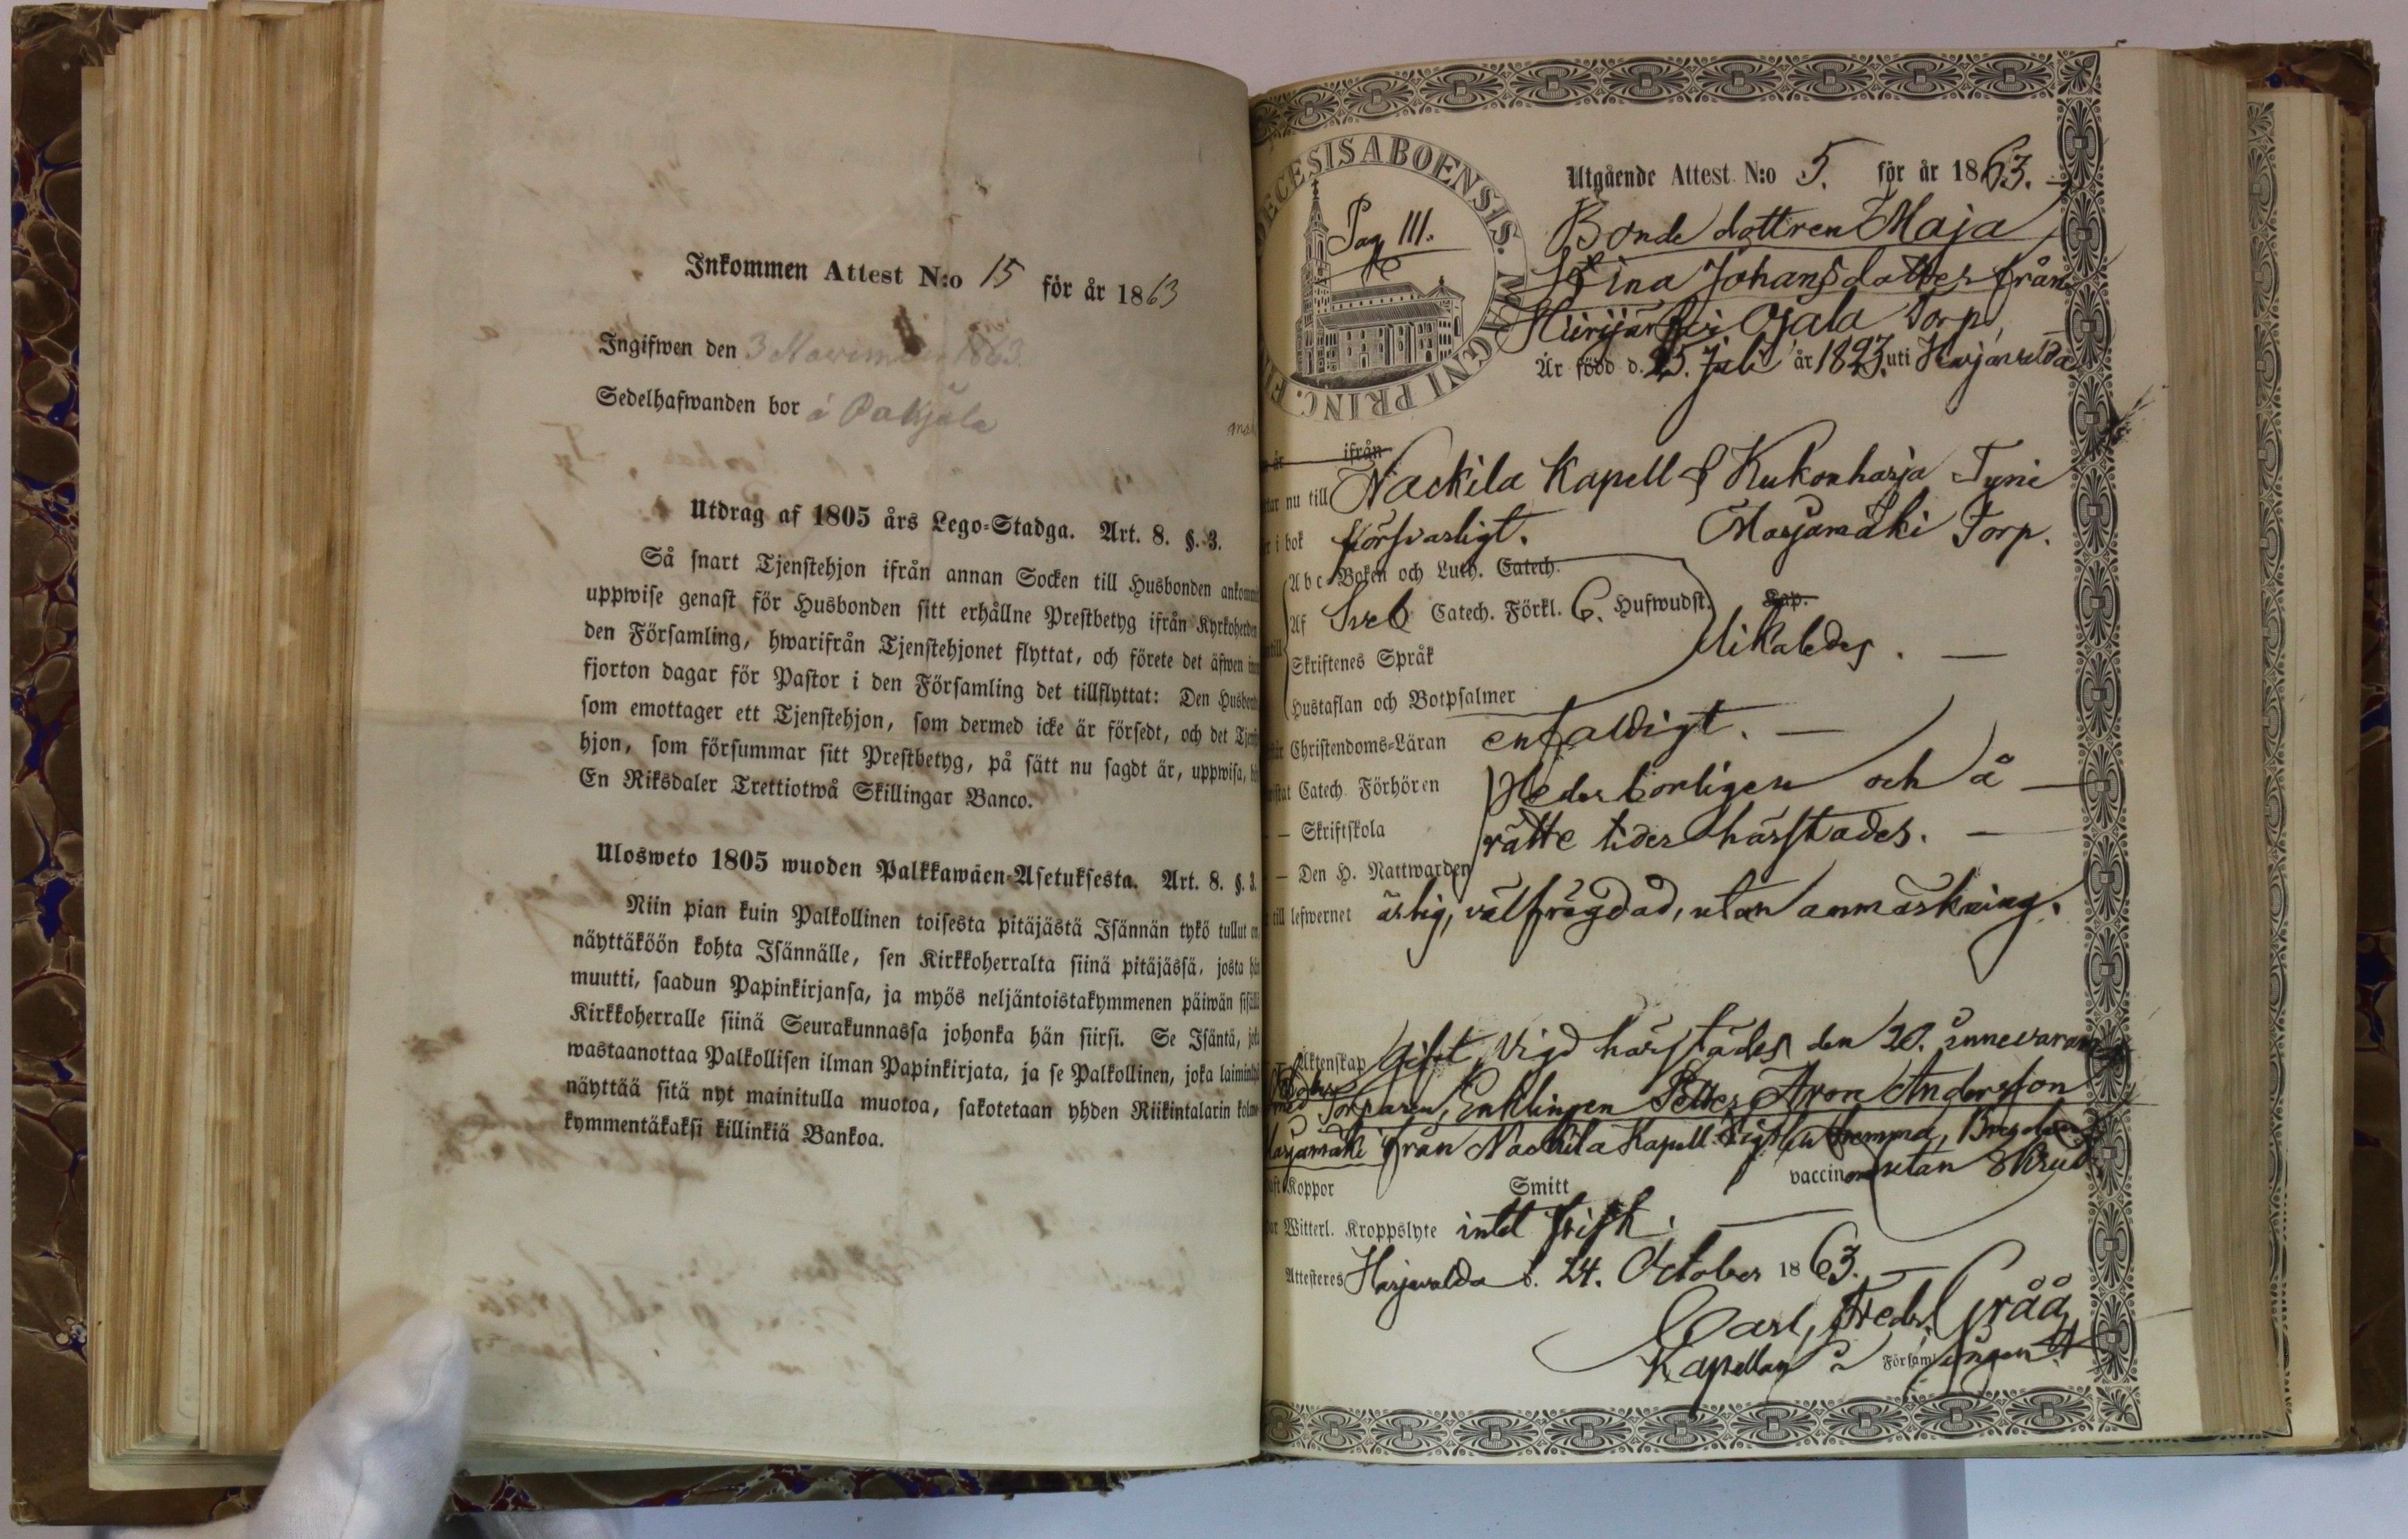 Inkommen Attest N:o 15 för år 1863
Ingifwen den 3 November 1863.
Sedelhafwanden bor å Pakjala
Utdrag af 1805 års Lego-Stadga. Art. 8. §. 3.
Så snart Tjenstehjon ifrån annan Socken till Husbonden
uppwise genast för Husbonden sitt erhållne Prestbetyg ifrån Kyrkoherden
den Församling, hwarifrån Tjenstehjonet flyttat, och förete det äfwen
fjorton dagar för Pastor i den Församling det tillflyttat: Den
som emottager ett Tjenstehjon, som dermed icke är försedt, och det
hjon, som försummar sitt Prestbetyg, på sätt nu sagdt är, uppwisa,
En Riksdaler Trettiotwå Skillingar Banco.
Ulosweto 1805 wuoden Palkkawäen-Asetuksesta. Art. 8. §. 3.
Niin pian kuin Palkollinen toisesta pitäjästä Isännän tykö tullut on
näyttäköön kohta Isännälle, sen Kirkkoherralta siinä pitäjässä, josta hän
muutti, saadun Papinkirjansa, ja myös neljäntoistakymmenen päiwän sisällä
Kirkkoherralle siinä Seurakunnassa johonka hän siirsi. Se Isäntä, joka
wastaanottaa Palkollisen ilman Papinkirjata, ja se Palkollinen, joka
näyttää sitä nyt mainitulla muotoa, sakotetaan yhden Riikintalarin kolme-
kymmentäkaksi killinkiä Bankoa.
DECESIS ABOENSIS. MAGNI PRINC.
Pag 111.
Utgående Attest N:o 5. för år 1863.
Bonde dottren Maja
Stina Johansdotter från
Hiirijärfvi Ojala Torp,
Är född d. 25. Juli år 1823. uti Harjavalda
ifrån
nu till Nackila Kapell & Kukonharja Tyni
i bok försvarligt. Marjamäki Torp.
Abc-Boken och Luth. Catech.
Af Sveb Catech. Förkl. 6. Hufwudst. Cap.
Skriftenes Språk likaledes.
Hustaflan och Botpsalmer
Christendoms-Läran enfaldigt.
Catech. Förhören Hederborligen och å
— Skriftskola rätte tider härstädes.
— Den H. Nattwarden
till lefwernet ärlig, välfrägdad, utan anmärkning.
Äktenskap Gift, vigd härstädes den 20. innevarande
med Torparen, Enklingen Petter Aron Andersson
Marjamäki från Nackila Kapell
utan
Koppor Smitt vaccin
Witterl. Kroppslyte intet frisk.
Attesteres Harjavalda d. 24. October 1863.
Carl Fredr. Gråå
Kapellan i Församlingen